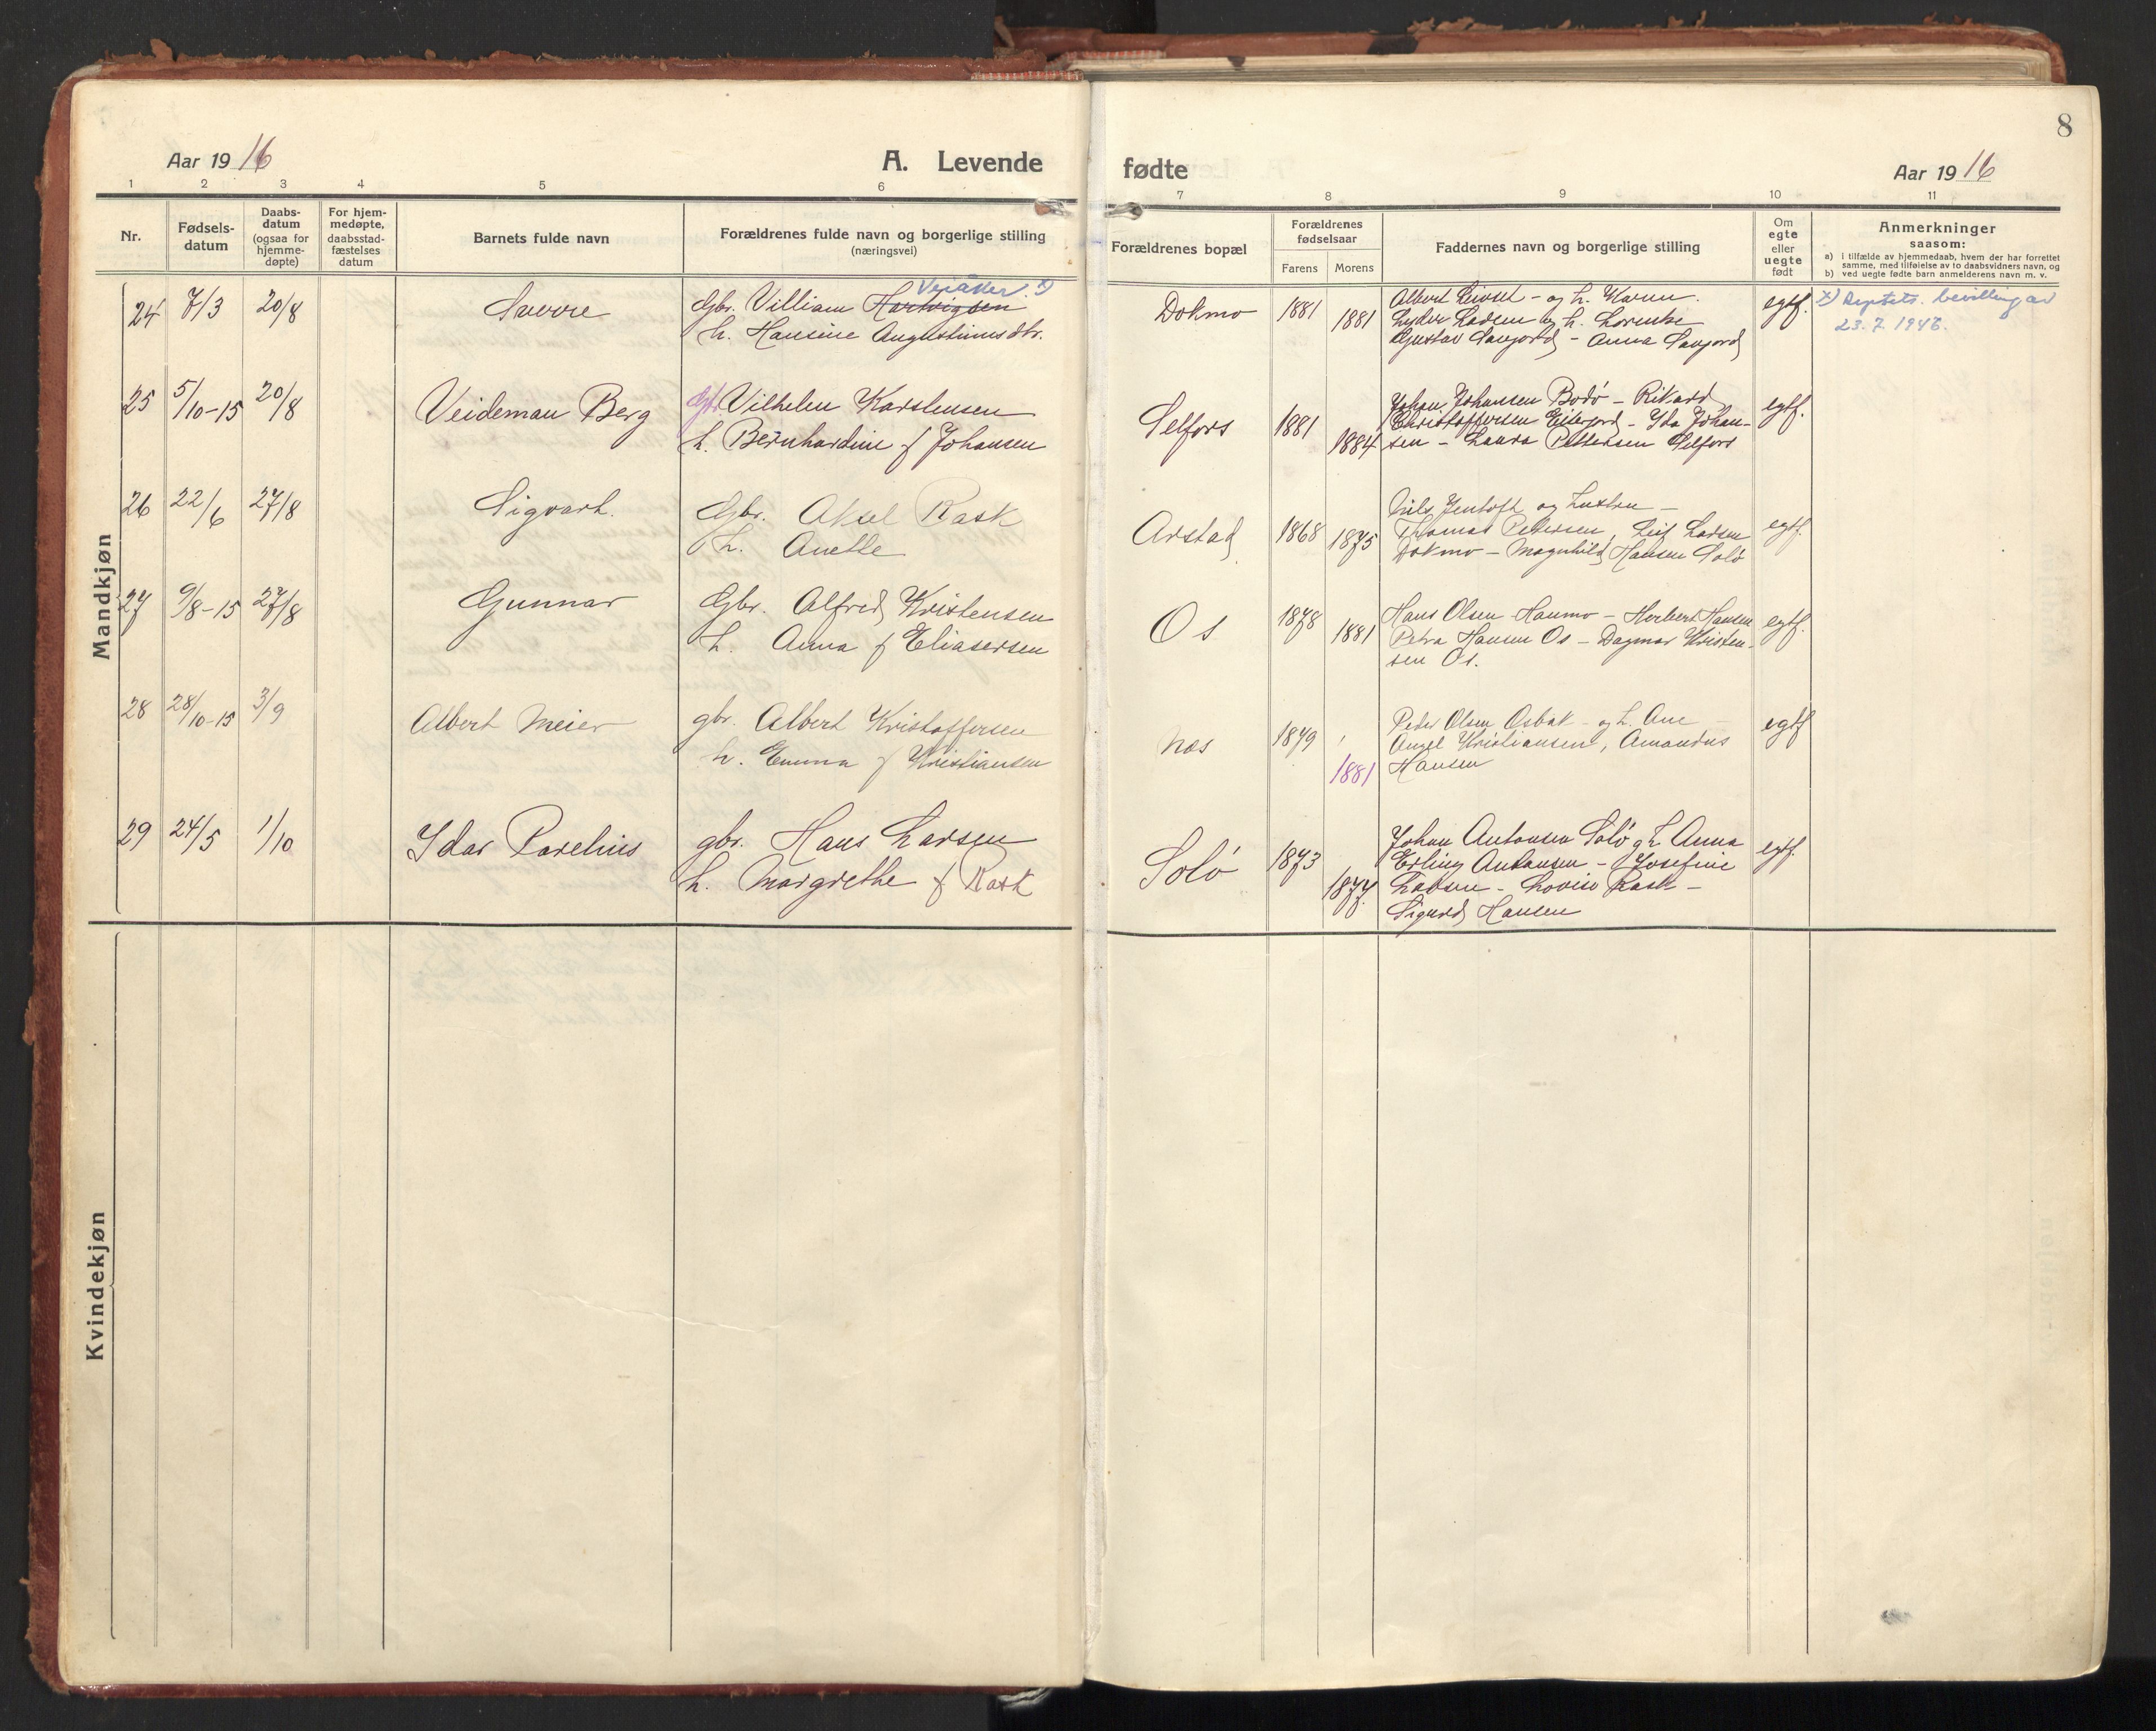 8
Aar 1916
A. Levende
fødte
Aar 1916
1 2 3 4 5 6 7 8 9 10 11
Nr.
Fødsels-
datum
Daabs-
datum
(ogsaa for
hjemme-
døpte)
For hjem-
medøpte,
daabsstad-
fæstelses
datum
Barnets fulde navn
Forældrenes fulde navn og borgerlige stilling
(næringsvei)
Forældrenes bopæl
Forældrenes
fødselsaar
Farens Morens
Faddernes navn og borgerlige stilling
Om
egte
eller
uegte
født
Anmerkninger
saasom:
a) i tilfælde av hjemmedaab, hvem der har forrettet
samme, med tilføielse av to daabsvidners navn, og
b) ved uegte fødte barn anmelderens navn m. v.
Mandkjøn
24 7/3 20/8 Sverre
Vejåker x)
Gbr. Villiam Hartvigsen
h. Hansine Augustinusdtr.
Dokmo 1881 1881
Albert - og h. Karen.
Lyder Larsen og h. Lorentse
Gustav Saugjord - Anna Saugjord
egtf.
x) bevilling av
23.7.1946.
25 5/10-15 20/8 Veideman Berg
Gbr. Vilhelm Karstensen
h. Bernhardine f Johansen
Selfors 1881 1884
Johan Johansen Bodø - Rikard
Christoffersen - Ida Johan-
sen - Laura Pettersen Selfors
egtf.
26 22/6 27/8 Sigvart.
Gbr. Aksel Rask
h. Anette
Arstad 1868 1875
Nils Jentoft og hustru -
Thomas Petersen, Leif Larsen
Dokmo - Magnhild Hansen Solø
egtf.
27 9/8-15 27/8 Gunnar
Gbr. Alfred Kristensen
h. Anna f Eliasersen
Os 1878 1881
Hans Olsen Haumo - Herbert Hansen
Petra Hansen Os - Dagmar Kristen-
sen Os.
egtf.
28 28/10-15 3/9 Albert Meier
gbr. Albert Kristoffersen
h. Emma f Kristiansen
Næs 1879 1881
Peder Olsen Osbak - og h. Ane -
Angel Kristiansen, Amandus
Hansen
egtf
29 24/5 1/10 Idar Parelius
gbr. Hans Larsen
h. Margrethe f Rask
Solø 1873 1877.
Johan Antonsen Solø og h. Anna
Erling Antonsen - Josefine
Larsen - Lovise Rask -
Sigurd Hansen
egtf.
Kvindekjøn